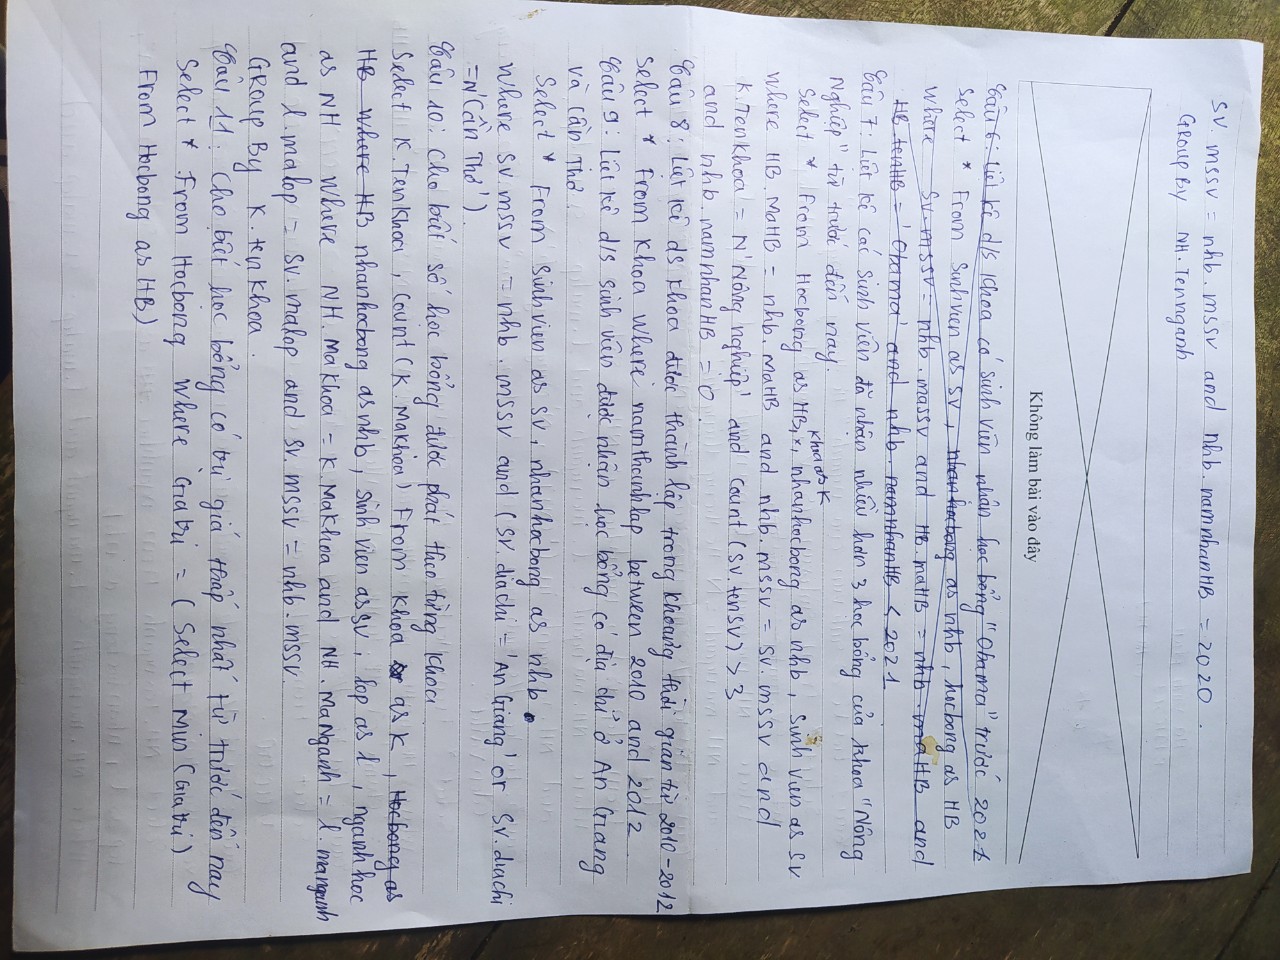 SV. mssv = nhb. mssv and nhb. namnhanHB = 2020.
Group By NH. Tennganh
Không làm bài vào đây
Câu 6: Liệt kê d/s khoa có sinh viên nhận học bổng "Obama" trước 2021
Select * From Sinhvien as SV, nhanhocbong as nhb, hocbong as HB
Where SV.mssv = nhb.massv and HB.maHB = nhb.maHB and
HB.tenHB = 'Obama' and nhb.namnhanHB < 2021
Câu 7: Liệt kê các sinh viên đã nhận nhiều hơn 3 học bổng của khoa "Nông
Nghiệp" từ trước đến nay.
khoa as K
Select * From Hocbong as HB, nhanhocbong as nhb, sinh vien as SV
Where HB.MaHB = nhb.MaHB and nhb.mssv = SV.mssv and
K.TenKhoa = N'Nông nghiệp' and count(SV.tensv) > 3
and nhb.namnhanHB = 0.
Câu 8: Liệt kê ds khoa được thành lập trong khoảng thời gian từ 2010-2012
Select * From khoa where namthanhlap between 2010 and 2012
Câu 9: Liệt kê d/s sinh viên được nhận học bổng có địa chỉ ở An Giang
và Cần Thơ.
Select * From Sinhvien as SV, nhanhocbong as nhb
Where SV.mssv = nhb.mssv and (SV.diachi = 'An Giang' or SV.diachi
= N'Cần Thơ').
Câu 10: Cho biết số học bổng được phát theo từng khoa
Select K.TenKhoa, Count(K.Makhoa) From Khoa as K, Hocbong as
HB Where HB nhanhocbong as nhb, sinh vien as SV, lop as l, nganh hoc
as NH Where NH.Makhoa = K.MaKhoa and NH.MaNganh = l.manganh
and l.malop = SV.malop and SV.mssv = nhb.mssv
Group By K.tenKhoa.
Câu 11: Cho biết học bổng có trị giá thấp nhất từ trước đến nay
Select * From Hocbong Where Giatri = (Select Min(Giatri)
From Hocbong as HB)